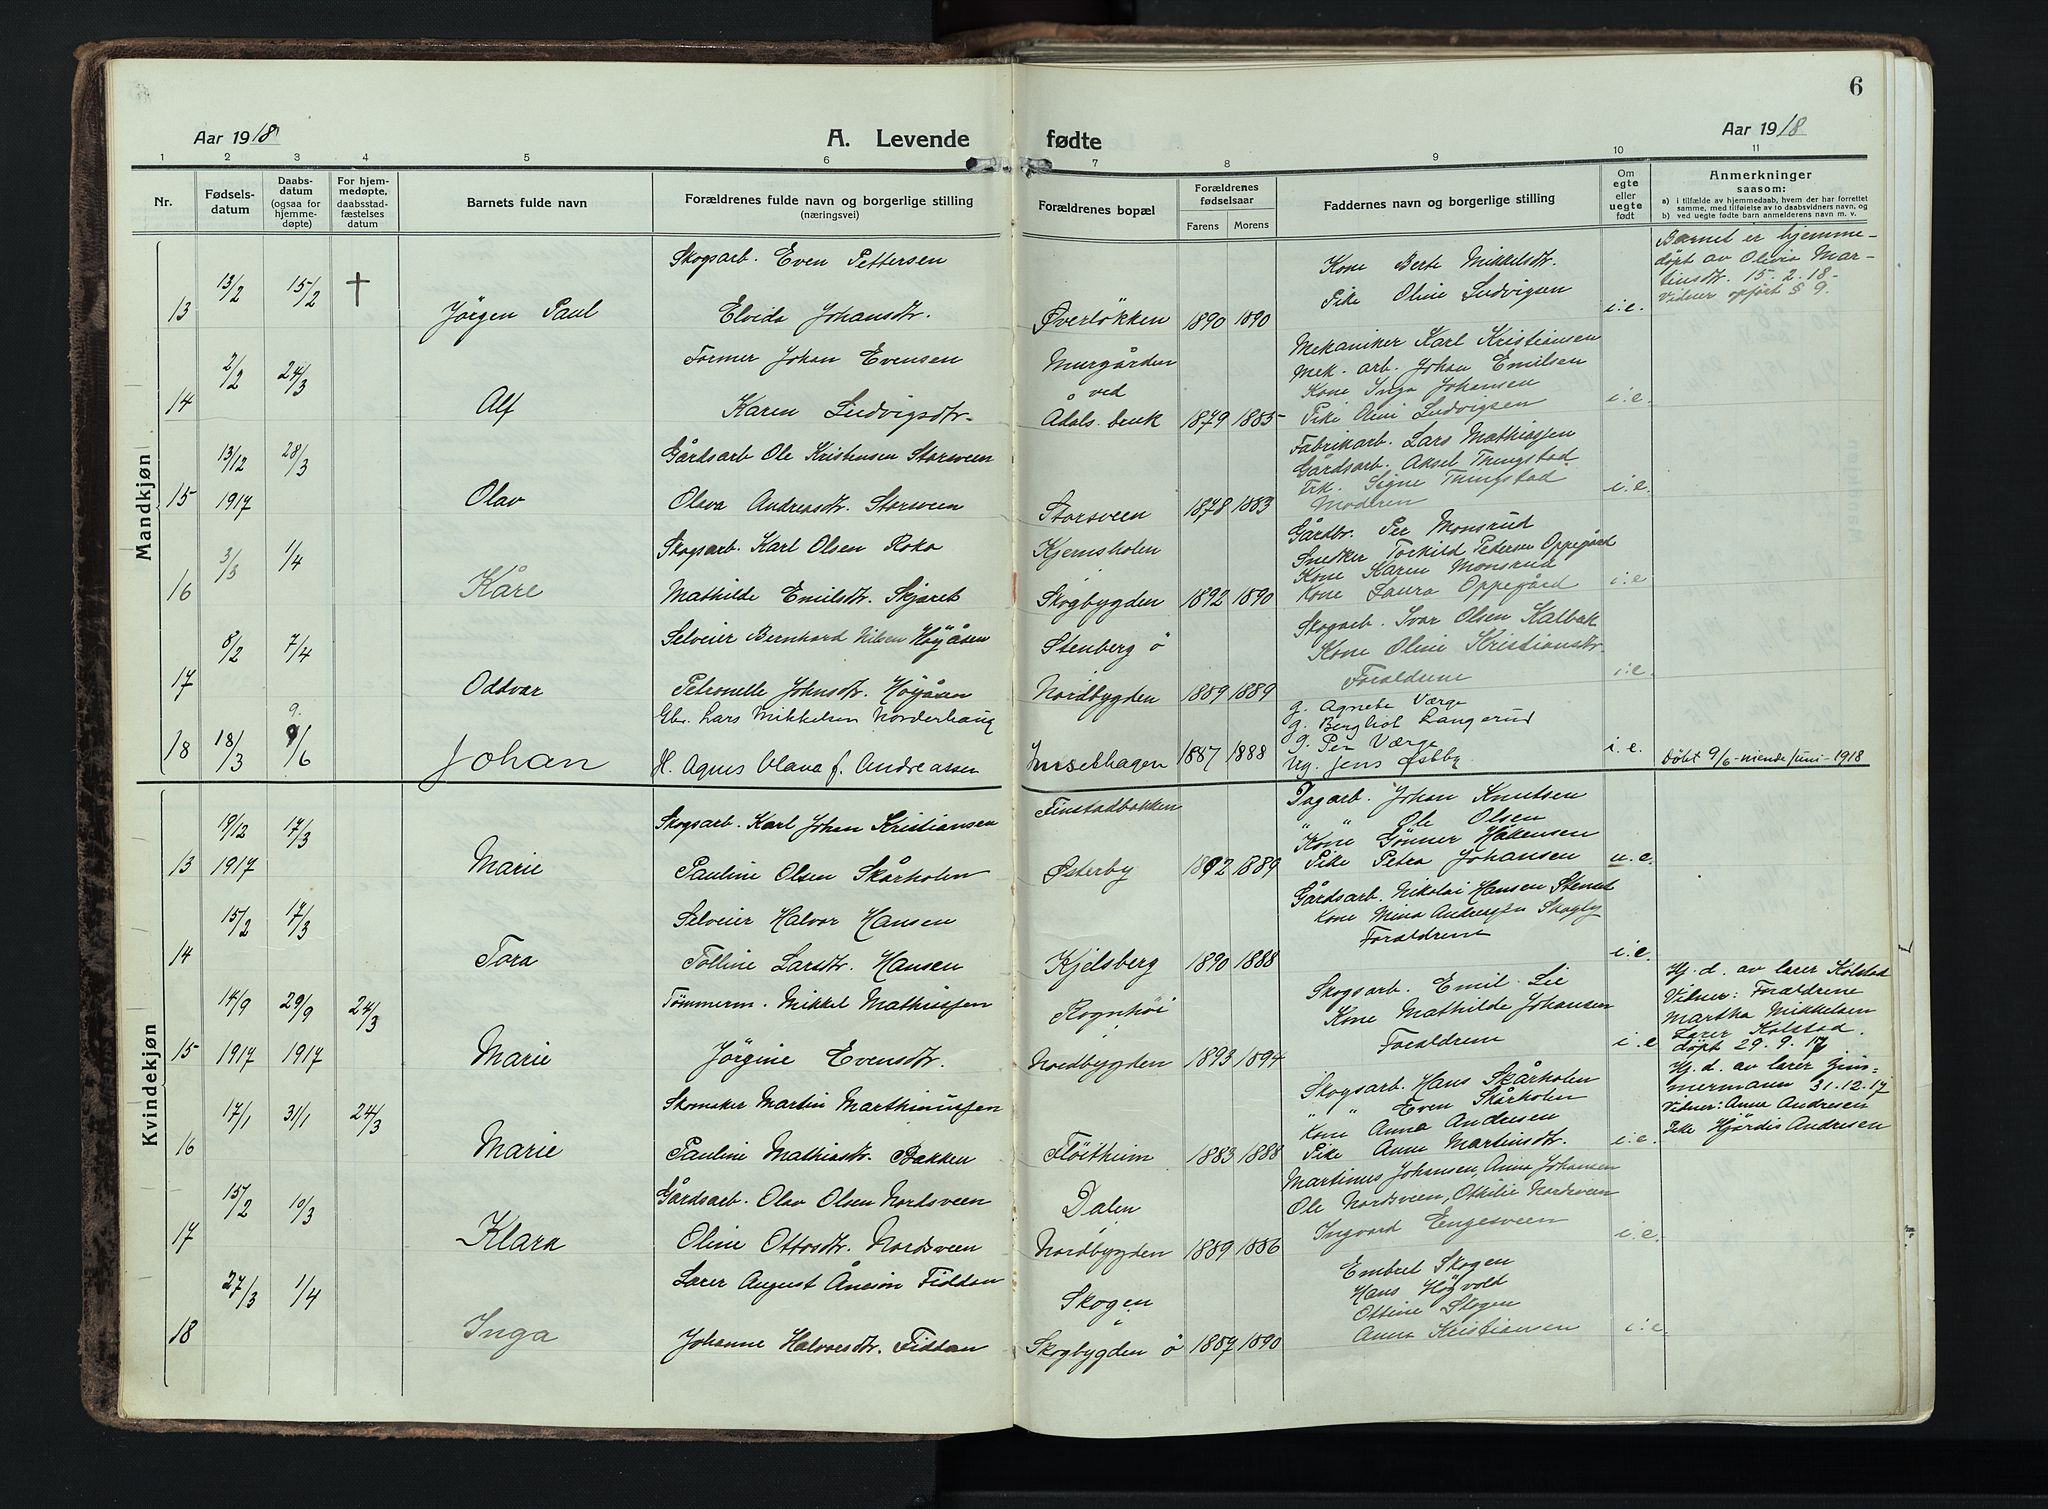 6
Aar 1918
A. Levende fødte
Aar 1918
1 2 3 4 5 6 7 8 9 10 11
Nr.
Fødsels-
datum
Daabs-
datum
(ogsaa for
hjemme-
døpte)
For hjem-
medøpte,
daabsstad-
fæstelses
datum
Barnets fulde navn
Forældrenes fulde navn og borgerlige stilling
(næringsvei)
Forældrenes bopæl
Forældrenes
fødselsaar
Farens Morens
Faddernes navn og borgerlige stilling
Om
egte
eller
uegte
født
Anmerkninger
saasom:
a) i tilfælde av hjemmedaab, hvem der har forrettet
samme, med tilføielse av to daabsvidners navn, og
b) ved uegte fødte barn anmelderens navn m. v.
Mandkjøn
13 13/2 15/2 †
Jörgen Paul
Skogsarb. Even Pettersen
Elvida Johansdtr.
Øverløkken 1890 1890
Kone Berte Mikkelsdtr.
Pike Oline Ludvigsen
i.e.
Barnet er hjemme-
döpt av Olivia Mar-
tinsdtr. 15.2.18.
Vidner opført § 9.
14 2/2 24/3
Alf
Former Johan Evensen
Karen Ludvigsdtr.
Murgården
ved
Ådals bruk 1879 1885
Mekaniker Karl Kristiansen
Mek. arb. Johan Emilsen
Kone Inga Johansen
Pike Ludvigsen
i.e.
15 13/12 1917 28/3
Olav
Gårdsarb Ole Kristensen Storsveen
Olava Andreasdtr. Storsveen
Storsveen 1878 1883
Fabrikarb. Lars Mathiassen
Gårdsarb. Aksel Tringstad
Frk. Signe Tringstad
Moderen
i.e.
16 3/3 1/4
Kåre
Skogsarb. Karl Olsen Roko
Mathilde Emilsdtr. Skjæret
Kjernsholen
Skogbygden 1892 1890
Gårdbr. Per Monsrud
Snedker Torkild Pedersen Oppegård
Kone Karen Monsrud
Kone Laura Oppegård
i.e.
17 8/2 7/4
Oddvar
Selveier Bernhard Nilsen Höyåsen
Petronelle Johnsdtr. Höyåsen
Stenberg ö
Nordbygden 1889 1889
Skogarb. Ivar Olsen Kalbak
Kone Oline Kristiansdtr.
Forældrene
i.e.
18 18/3 9. 9/6
Johan
Gbr. Lars Mikkelsen Norderhaug
H. Agnes Olava f. Andreassen
1887 1888
g. Agnete Værge
g. Bergliot Langerud
g. Per Værge
Ug. Jens Østby
i.e.
Döbt 9/6 - niende juni - 1918
Kvindekjøn
13 19/12 1917 17/3
Marie
Skogsarb. Karl Johan Kristiansen
Pauline Olsen Skårholen
Finstadbakken
Østerby 1892 1889
Dagarb. Johan Knutsen
" " Ole Olsen
Kone Gunner Håkensen
Pike Petra Johansen
u.e.
14 15/2 17/3
Tora
Selveier Halvor Hansen
Tolline Larsdtr. Hansen
Kjelsberg 1890 1888
Gårdsarb. Nikolai Hansen
Kone Mina Andresen Skogby
Forældrene
i.e.
15 14/9 1917 29/9 1917 24/3
Marie
Tömmerm. Mikkel Mathiassen
Jörgine Evensdtr.
Rognhöi
Nordbygden 1893 1894
Skogsarb. Emil Lie
Kone Mathilde Johansen
Forældrene
i.e
Hj. d. av lærer Kolstad
Vidner: Forældrene
Martha Mikkelsen
Lærer Kolstad.
döpt 29.9.17
16 17/1 31/1 24/3
Marie
Skomaker Martin Marthinussen
Pauline Mathiasdtr. Bakken
Flöitheim 1883 1888
Skogsarb. Hans Skårholen
" " Even Skårholen
Kone Anna Andresen
Pike Anna Martinsdtr.
i.e.
Hj. d. av lærer Zim-
mermann 31.12.17
Vidner: Anna Andresen
Pike Hjördis Andresen
17 15/2 10/3
Klara
Gårdsarb. Olav Olsen Nordsveen
Oline Ottosdtr. Nordsveen
Dalen
Nordbygden 1889 1886
Martinus Johansen, Anna Johansen
Ole Nordsveen, Othilie Nordsveen
Ingvard Engesveen
i.e.
18 27/3 1/4
Inga
Lærer August Åneson Fidtan
Johanne Halvorsdtr. Fidtan
Skogen
Skogbygden ö 1887 1890
Embret Skogen
Hans Högvold
Ottine Skogen
Anna Kristiansen
i.e.